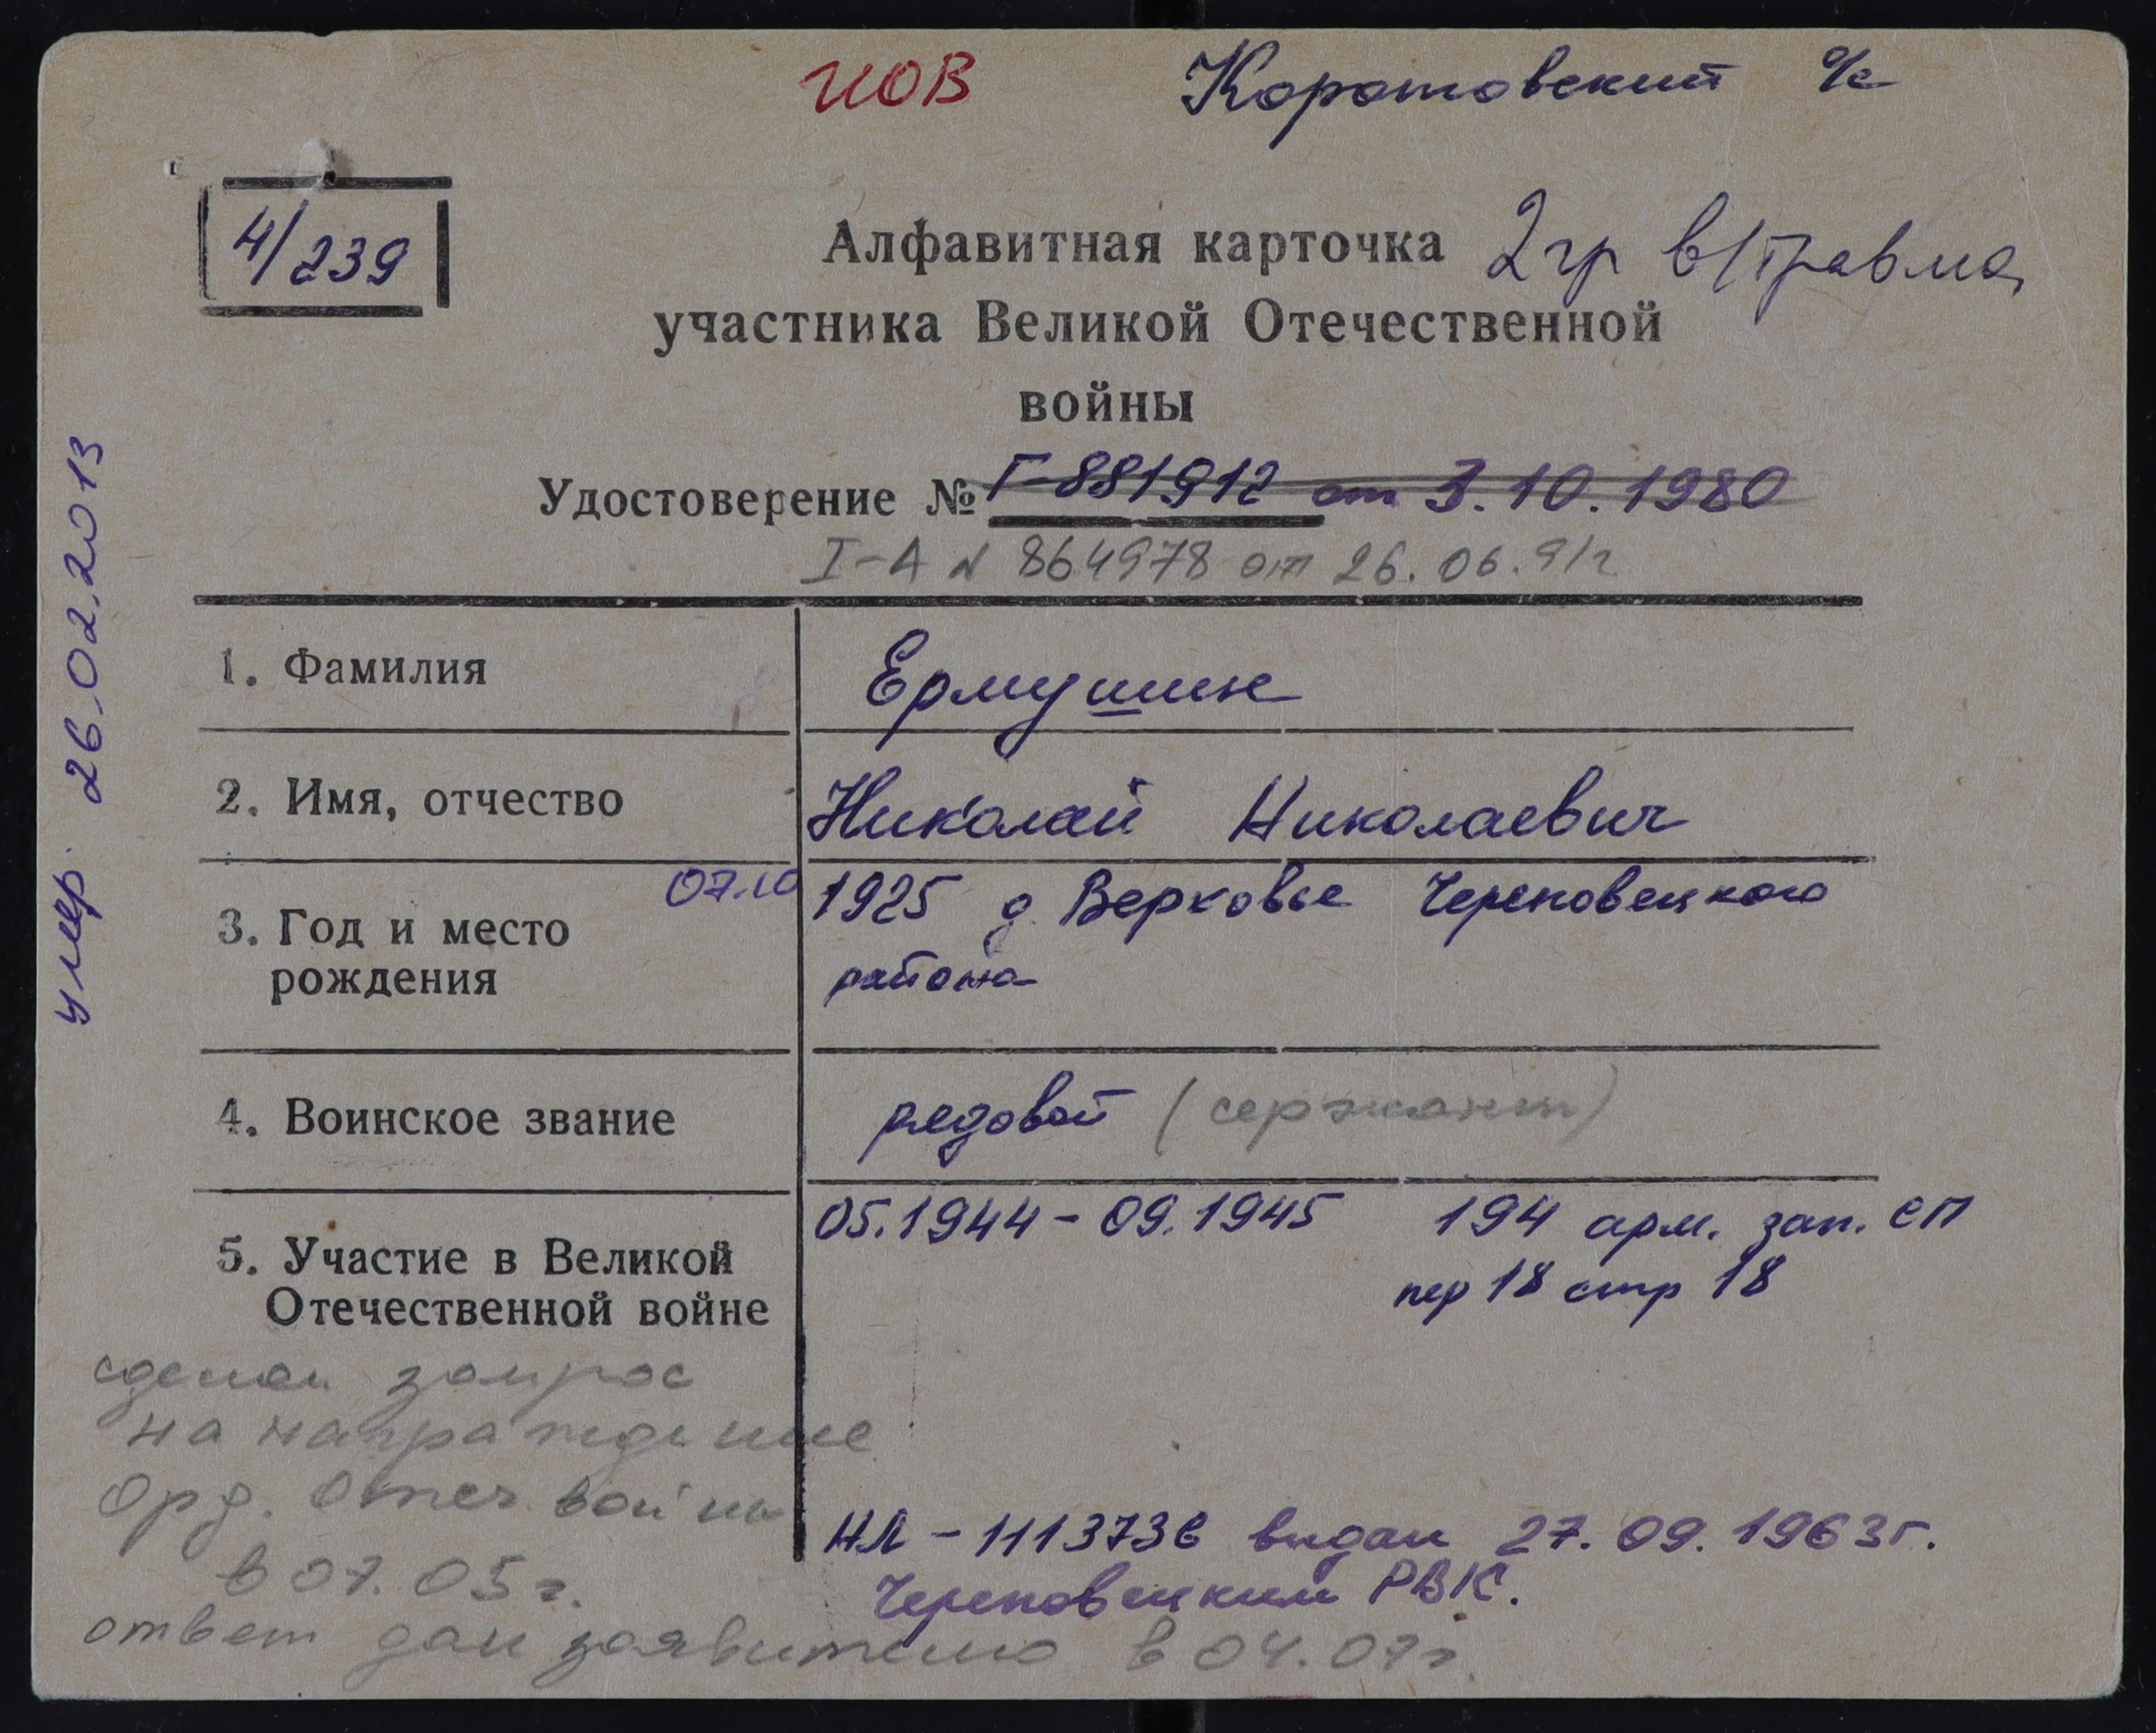 ИОВ Коротовский с/с
4/239
Алфавитная карточка 2 гр в/травма
участника Великой Отечественной
войны
Удостоверение № Г-881912 от 3.10.1980
I-А N 864978 от 26.06.91г
умер 26.02.2013
1. Фамилия Ермушин
2. Имя, отчество Николай Николаевич
3. Год и место рождения 07.10 1925 д. Верховье Череповецкого
района
4. Воинское звание рядовой (сержант)
5. Участие в Великой Отечественной войне 05.1944 - 09.1945 194 арм. зап. СП
пер 18 стр 18
сделан запрос
на награждение
Орд. Отеч войны
в 07.05г.
НЛ - 1113736 выдан 27.09.1963г.
Череповецким РВК.
ответ дан заявителю в 04.07г.